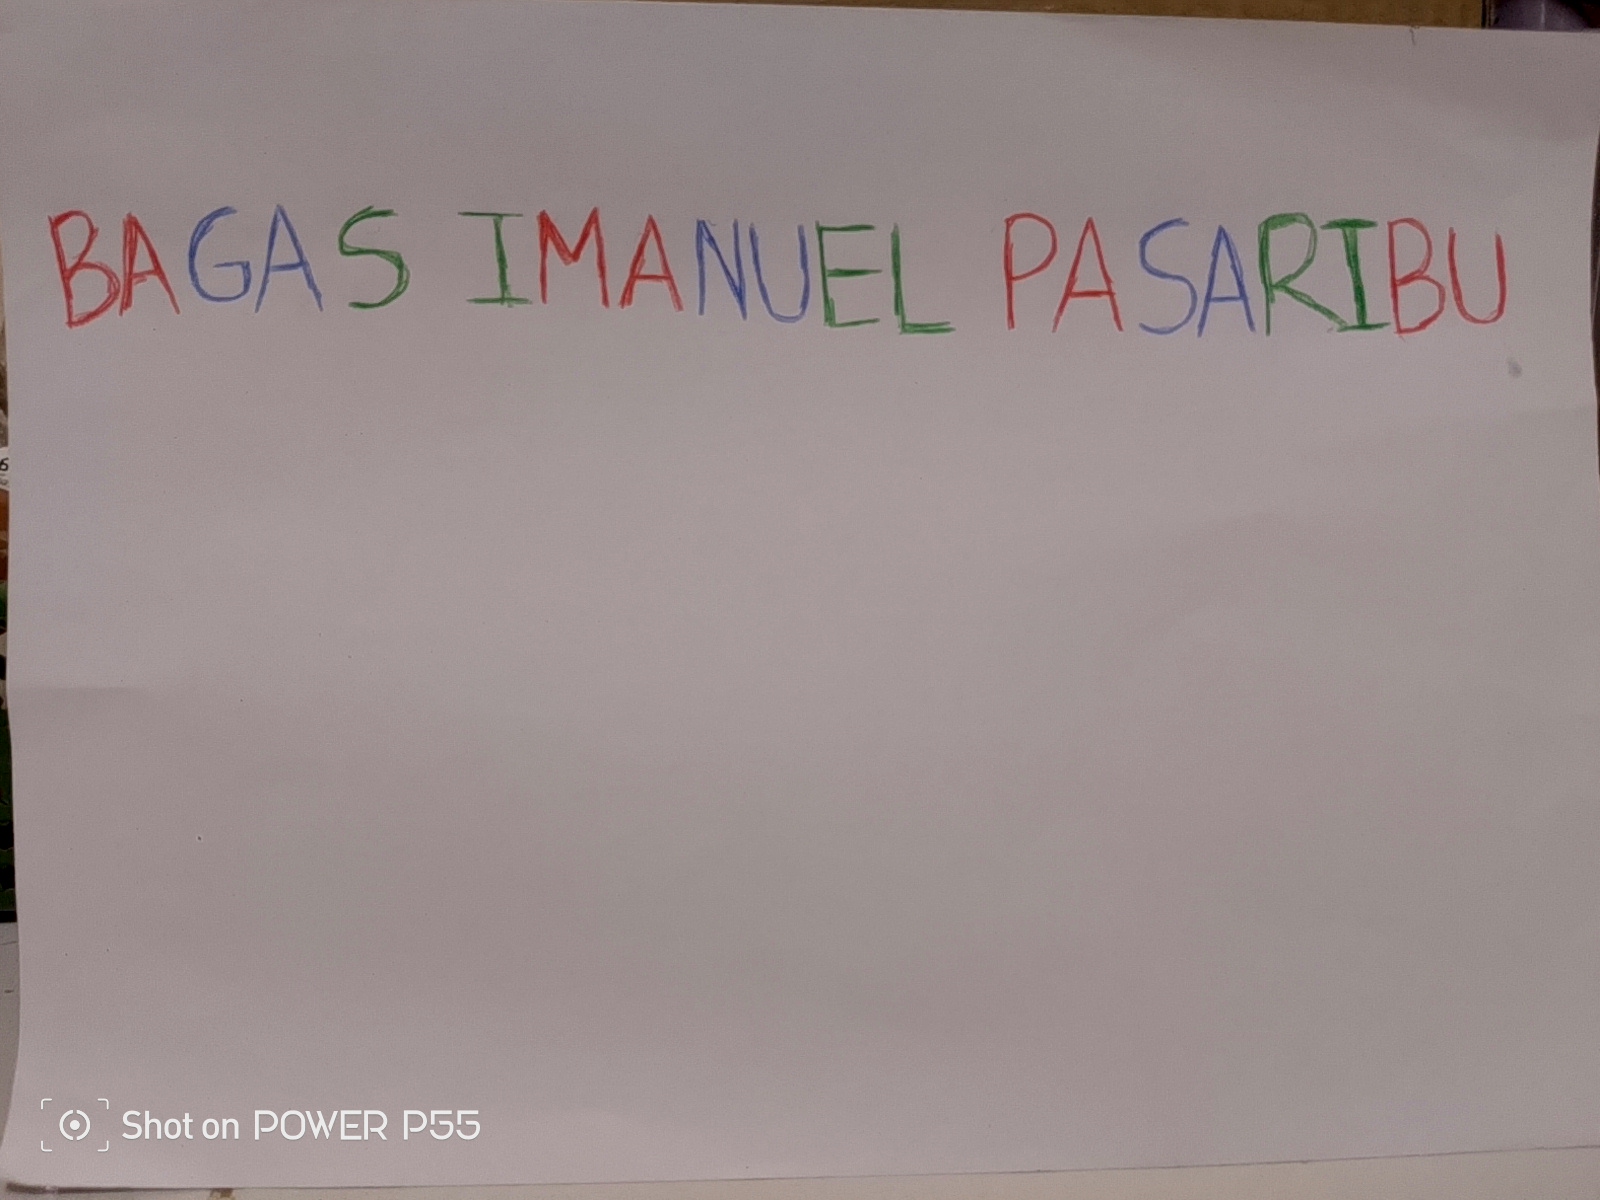 BAGAS IMANUEL PASARIBU
6
Shot on POWER P55